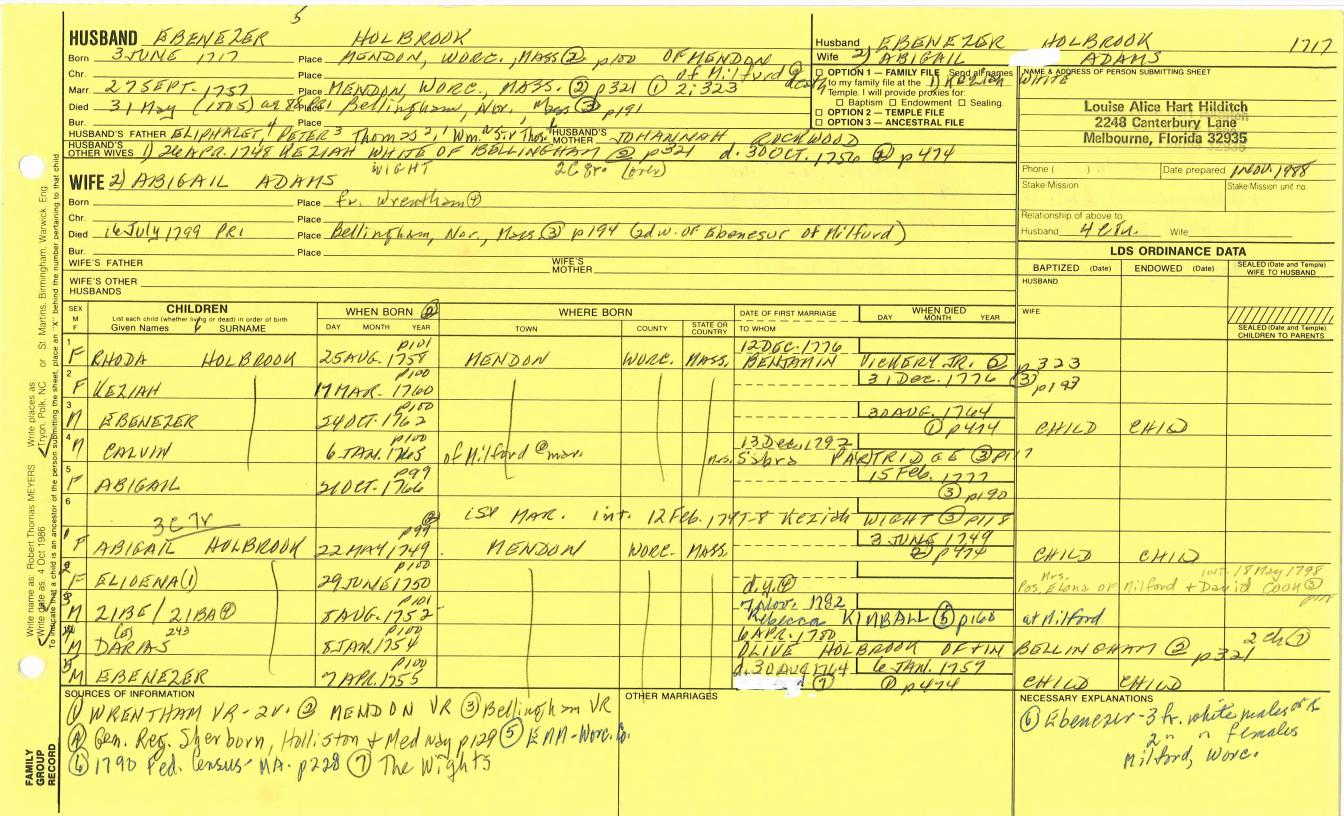 5
HUSBAND EBENEZER HOLBROOK
Born 3 JUNE 1717 Place MENDON, WORC., MASS (2) p100 OF MENDON
Chr. Place of Milford
Marr. 27 SEPT. 1757 Place MENDON, WORC., MASS. (2) p321 (1) 2:323
Died 31 May (1805) ae 88 PR1 Place Bellingham, Nor., Mass (3) p191
Bur. Place
HUSBAND'S FATHER ELIPHALET, 4 PETER 3 Thomas 2, 1 Wm. Sir Thos. HUSBAND'S MOTHER JOHANNAH ROCKWOOD
HUSBAND'S OTHER WIVES 1) 26 APR. 1748 KEZIAH WHITE OF BELLINGHAM (2) p321 d. 30 OCT. 1756 (2) p474
WIGHT (over)
WIFE 2) ABIGAIL ADAMS
Born Place fr. Wrentham (4)
Chr. Place
Died 16 July 1799 PR1 Place Bellingham, Nor., Mass (3) p194 (2d w. of Ebenesur of Milfurd)
Bur. Place
WIFE'S FATHER WIFE'S MOTHER
WIFE'S OTHER HUSBANDS
Husband EBENEZER HOLBROOK 1717
Wife 2) ABIGAIL ADAMS
1) KEZIAH WHITE
OPTION 1 — FAMILY FILE Send all names
to my family file at the
Temple. I will provide proxies for:
Baptism Endowment Sealing
OPTION 2 — TEMPLE FILE
OPTION 3 — ANCESTRAL FILE
NAME & ADDRESS OF PERSON SUBMITTING SHEET
Louise Alice Hart Hilditch
2248 Canterbury Lane
Melbourne, Florida 32935
Phone ( ) Date prepared 1 NOV. 1988
Stake-Mission Stake-Mission unit no.
Relationship of above to
Husband Wife
LDS ORDINANCE DATA
BAPTIZED (Date) ENDOWED (Date) SEALED (Date and Temple) WIFE TO HUSBAND
HUSBAND
WIFE
SEALED (Date and Temple) CHILDREN TO PARENTS
SEX M F CHILDREN WHEN BORN (2) WHERE BORN DATE OF FIRST MARRIAGE WHEN DIED
List each child (whether living or dead) in order of birth
Given Names SURNAME DAY MONTH YEAR TOWN COUNTY STATE OR COUNTRY TO WHOM DAY MONTH YEAR
1 p101 12 DEC. 1776
F RHODA HOLBROOK 25 AUG. 1758 MENDON WORC. MASS. BENJAMIN VICKERY JR. (2) p323
2 p100 31 Dec. 1776 (3) p193
F KEZIAH 17 MAR. 1760
3 p100 30 AUG. 1764
M EBENEZER 24 OCT. 1762 (1) p474 CHILD CHILD
4 p100 13 Dec. 1792
M CALVIN 6 JAN. 1765 of Milford @ mar. mrs. Sabra PARTRIDGE (3) p117
5 p99 15 Feb. 1777
F ABIGAIL 21 OCT. 1766 (3) p190
6 1st MAR. int. 12 Feb. 1747-8 Keziah WIGHT (3) p118
1 p99 3 JUNE 1749
F ABIGAIL HOLBROOK 22 MAY 1749 MENDON WORC. MASS. (2) p474 CHILD CHILD
2 p100 int. 18 May 1798
F ELIOENA (1) 29 JUNE 1750 d.y. Mrs. Pos. Elona of Milford + David COOK (3)
3 p101 7 Nov. 1782
M ZIBE / ZIBA (4) 5 AUG. 1752 Rebecca KIMBALL (5) p168 at Milford
p100 243 6 APR. 1780
M DARIAS 8 JAN. 1754 OLIVE HOLBROOK OF BELLINGHAM (2) p321 2 ch (7)
p100 d. 30 AUG 1764 6 JAN. 1757
M EBENEZER 7 APR. 1755 (7) (1) p474 CHILD CHILD
SOURCES OF INFORMATION
(1) WRENTHAM VR-2v. (2) MENDON VR (3) Bellingham VR
(4) Gen. Reg. Sherborn, Holliston + Medway p129 (5) EMM-Worc. Co.
(6) 1790 Fed. Census-MA. p228 (7) The Wights
OTHER MARRIAGES
NECESSARY EXPLANATIONS
(6) Ebenezer-3 fr. white males
2 " " females
Milford, Worc.
FAMILY GROUP RECORD
Write name as: Robert Thomas MEYERS Write places as: Tryon, Polk, NC or St. Martins, Birmingham, Warwick, Eng.
Write date as: 4 Oct 1986
To indicate that a child is an ancestor of the person submitting the sheet, place an "X" behind the number pertaining to that child